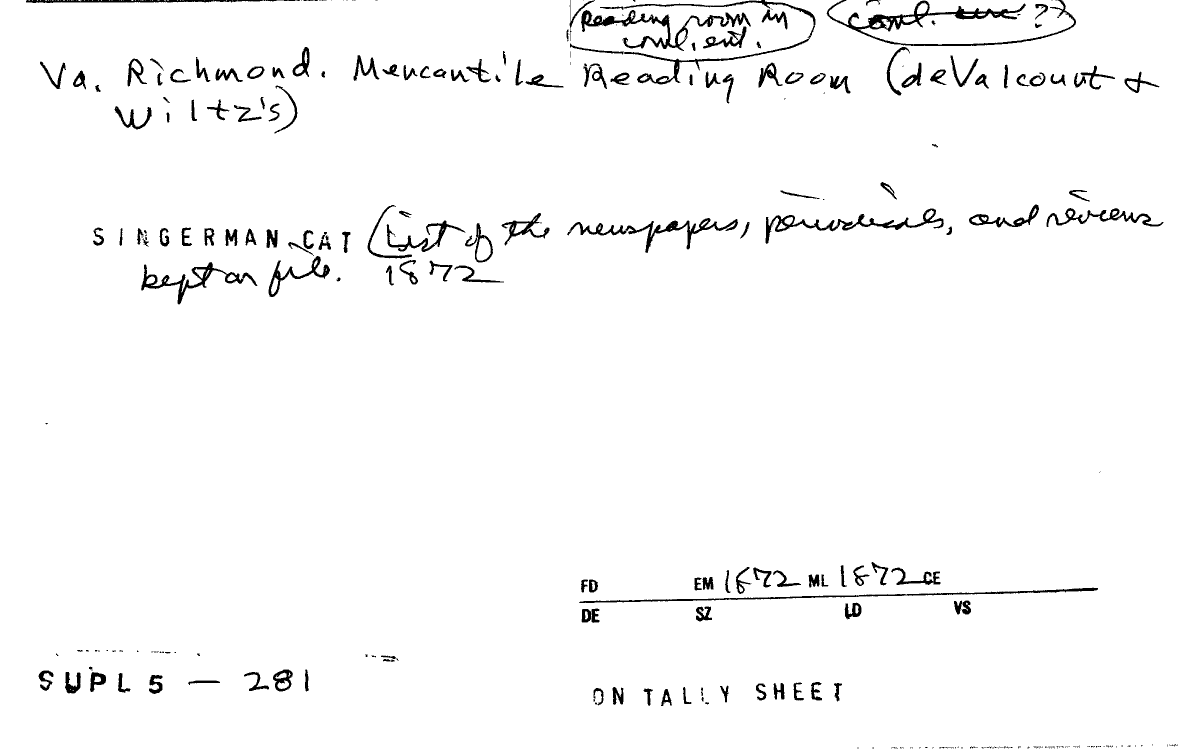 Reading room in
coml. ent.
coml. ??
Va. Richmond. Mercantile Reading Room (deValcourt +
Wiltz's)
SINGERMAN CAT (List of the newspapers, periodicals, and reviews
kept on file. 1872
FD EM 1872 ML 1872 CE
DE SZ LD VS
SUPL 5 — 281
ON TALLY SHEET